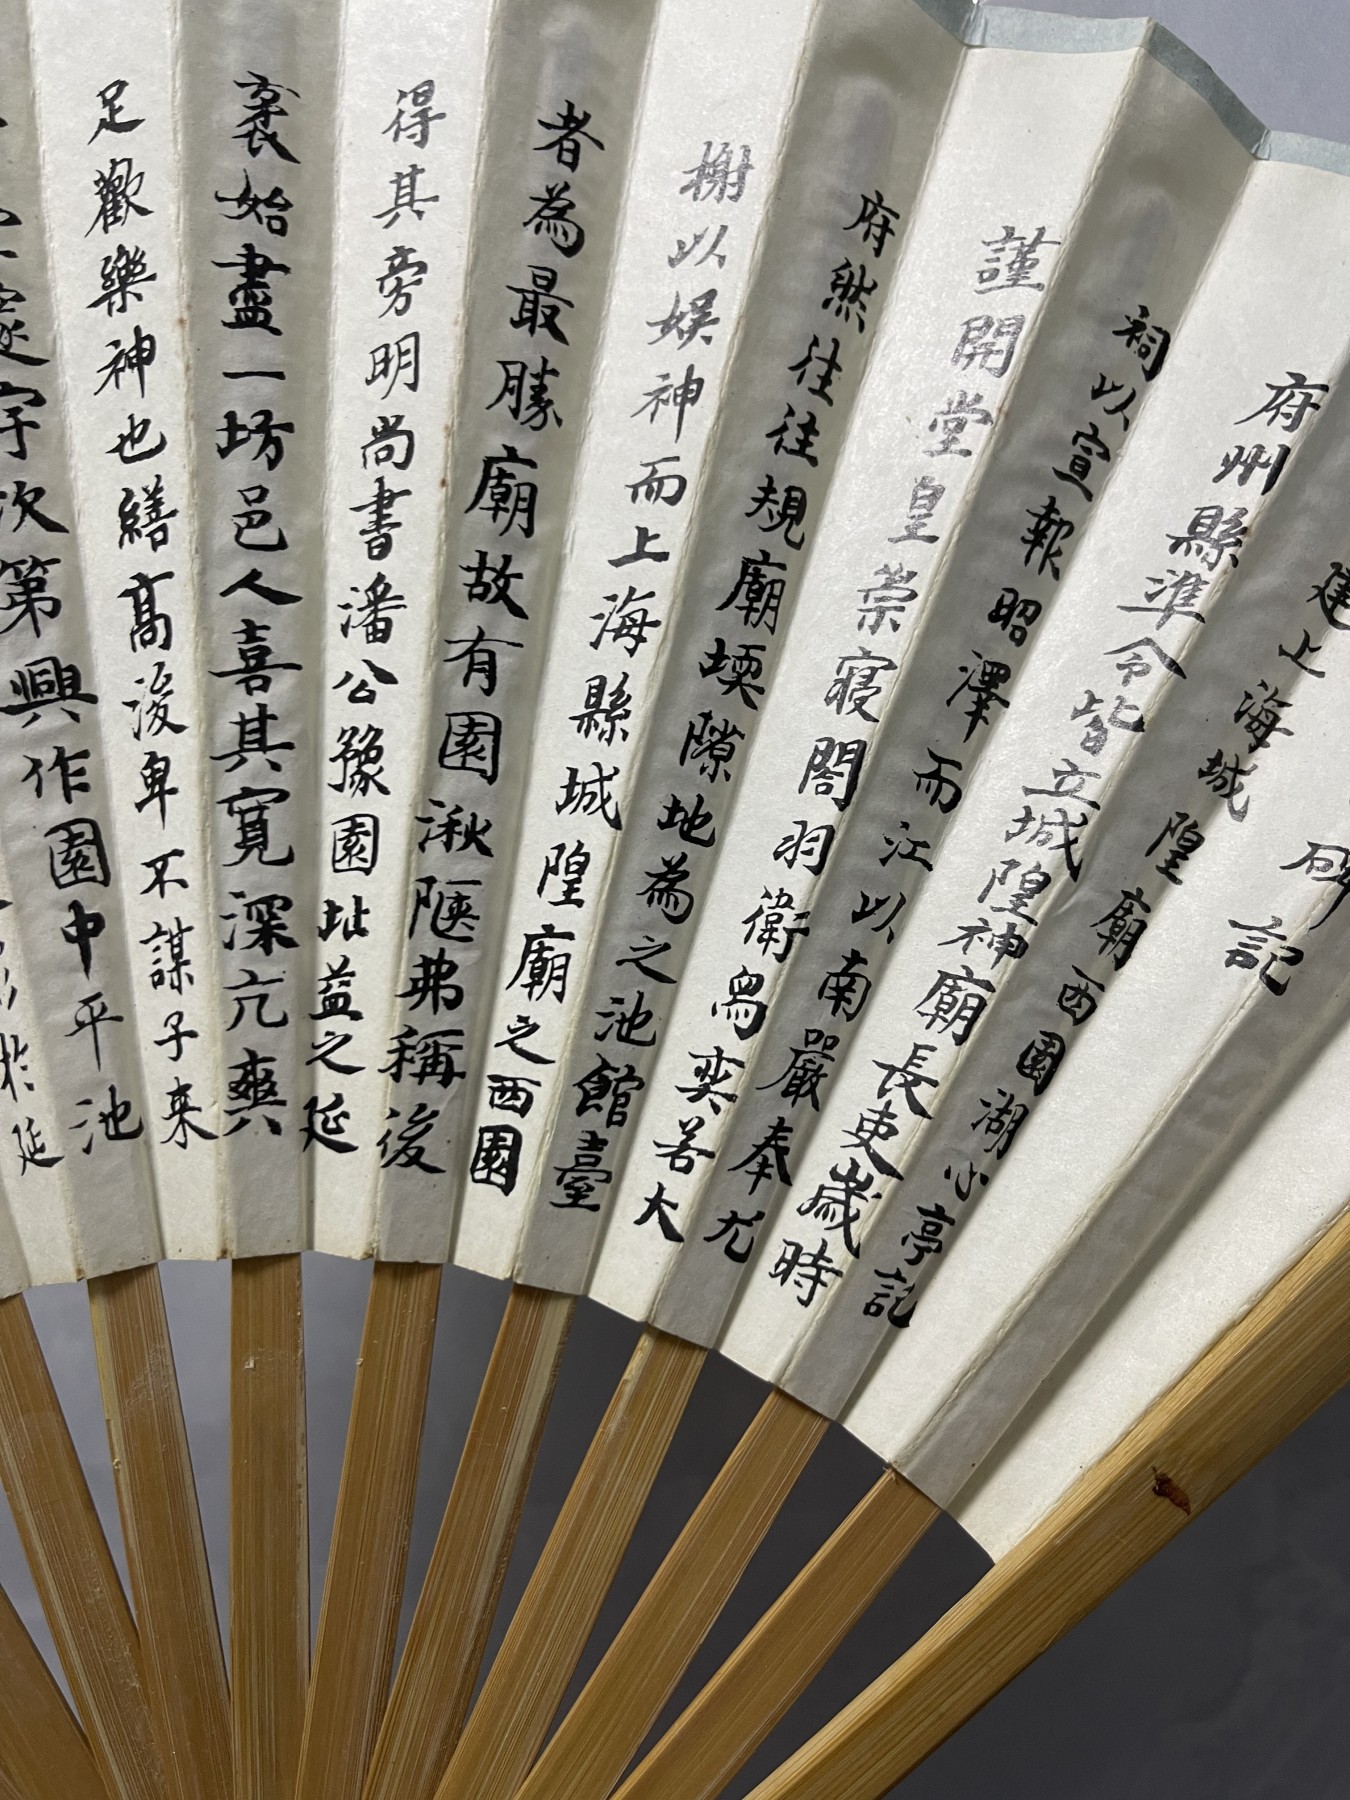 碑記
建上海城隍廟西園湖心亭記
府州縣準令皆立城隍神廟長吏歲時
祠以宣報昭澤而江以南嚴奉尤
謹開堂皇崇寢閤羽衛舄奕若大
府然往往規廟堧隙地為之池館臺
榭以娛神而上海縣城隍廟之西園
者為最勝廟故有園湫陿弗稱後
得其旁明尚書潘公豫園址益之延
袤始盡一坊邑人喜其寬深亢爽
足歡樂神也繕高浚卑不謀子来
邃宇次第興作園中平池
於延